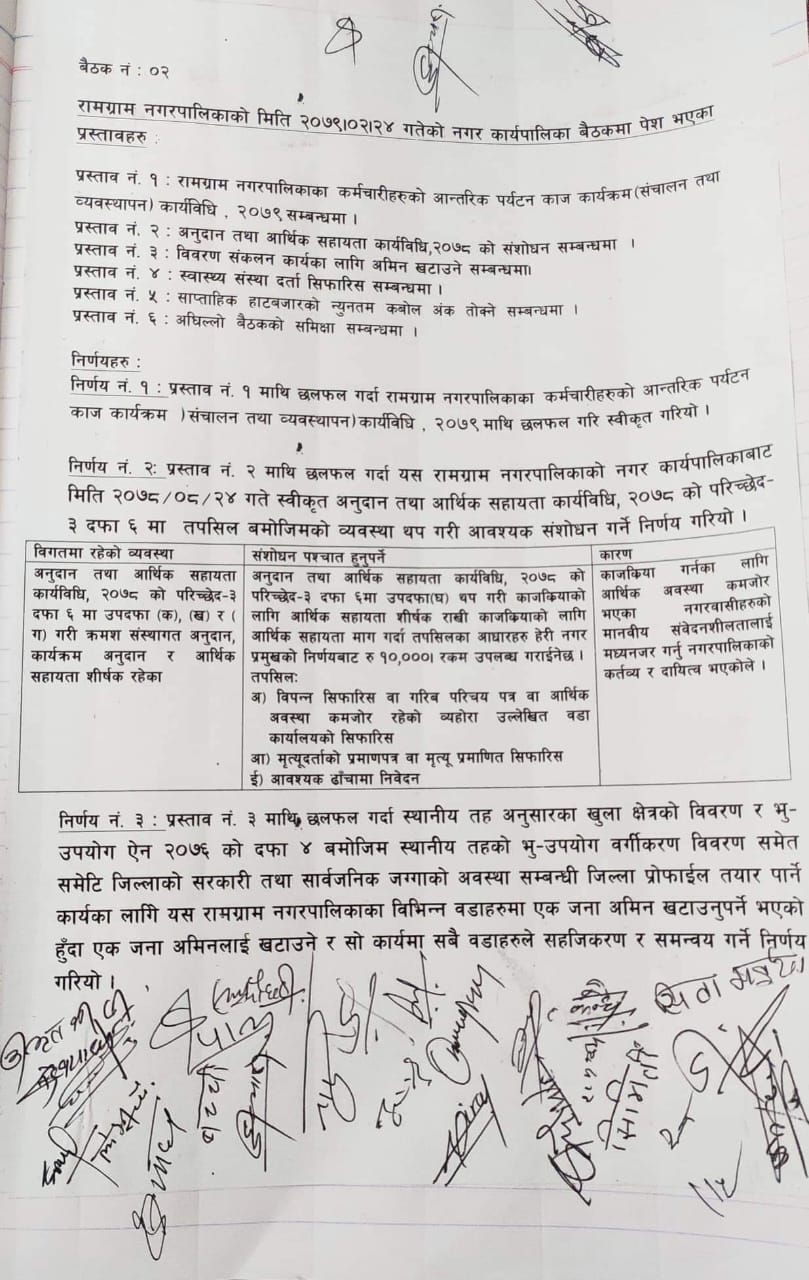 बैठक नं : ०२
रामग्राम नगरपालिकाको मिति २०७९।०२।२४ गतेको नगर कार्यपालिका बैठकमा पेश भएका
प्रस्तावहरु :
प्रस्ताव नं. १ : रामग्राम नगरपालिकाका कर्मचारीहरुको आन्तरिक पर्यटन काज कार्यक्रम(संचालन तथा
व्यवस्थापन) कार्यविधि , २०७९ सम्बन्धमा ।
प्रस्ताव नं. २ : अनुदान तथा आर्थिक सहायता कार्यविधि,२०७८ को संशोधन सम्बन्धमा ।
प्रस्ताव नं. ३ : विवरण संकलन कार्यका लागि अमिन खटाउने सम्बन्धमा।
प्रस्ताव नं. ४ : स्वास्थ्य संस्था दर्ता सिफारिस सम्बन्धमा ।
प्रस्ताव नं. ५ : साप्ताहिक हाटबजारको न्युनतम कबोल अंक तोक्ने सम्बन्धमा ।
प्रस्ताव नं. ६ : अघिल्लो बैठकको समिक्षा सम्बन्धमा ।
निर्णयहरु :
निर्णय नं. १ : प्रस्ताव नं. १ माथि छलफल गर्दा रामग्राम नगरपालिकाका कर्मचारीहरुको आन्तरिक पर्यटन
काज कार्यक्रम )संचालन तथा व्यवस्थापन)कार्यविधि , २०७९ माथि छलफल गरि स्वीकृत गरियो ।
निर्णय नं. २: प्रस्ताव नं. २ माथि छलफल गर्दा यस रामग्राम नगरपालिकाको नगर कार्यपालिकाबाट
मिति २०७८/०८/२४ गते स्वीकृत अनुदान तथा आर्थिक सहायता कार्यविधि, २०७८ को परिच्छेद-
३ दफा ६ मा तपसिल बमोजिमको व्यवस्था थप गरी आवश्यक संशोधन गर्ने निर्णय गरियो ।
विगतमा रहेको व्यवस्था
अनुदान तथा आर्थिक सहायता
कार्यविधि, २०७८ को परिच्छेद-३
दफा ६ मा उपदफा (क), (ख) र (
ग) गरी क्रमश संस्थागत अनुदान,
कार्यक्रम अनुदान र आर्थिक
सहायता शीर्षक रहेका
संशोधन पश्चात हुनुपर्ने
अनुदान तथा आर्थिक सहायता कार्यविधि, २०७८ को
परिच्छेद-३ दफा ६मा उपदफा(घ) थप गरी काजकियाको
लागि आर्थिक सहायता शीर्षक राखी काजकियाको लागि
आर्थिक सहायता माग गर्दा तपसिलका आधारहरु हेरी नगर
प्रमुखको निर्णयबाट रु १०,०००। रकम उपलब्ध गराईनेछ ।
तपसिल:
अ) विपन्न सिफारिस वा गरिब परिचय पत्र वा आर्थिक
अवस्था कमजोर रहेको व्यहोरा उल्लेखित वडा
कार्यालयको सिफारिस
आ) मृत्यूदर्ताको प्रमाणपत्र वा मृत्यू प्रमाणित सिफारिस
ई) आवश्यक ढाँचामा निवेदन
कारण
काजकिया गर्नका लागि
आर्थिक अवस्था कमजोर
भएका नगरवासीहरुको
मानवीय संवेदनशीलतालाई
मध्यनजर गर्नु नगरपालिकाको
कर्तव्य र दायित्व भएकोले ।
निर्णय नं. ३ : प्रस्ताव नं. ३ माथि छलफल गर्दा स्थानीय तह अनुसारका खुला क्षेत्रको विवरण र भु-
उपयोग ऐन २०७६ को दफा ४ बमोजिम स्थानीय तहको भु-उपयोग वर्गीकरण विवरण समेत
समेटि जिल्लाको सरकारी तथा सार्वजनिक जग्गाको अवस्था सम्बन्धी जिल्ला प्रोफाईल तयार पार्ने
कार्यका लागि यस रामग्राम नगरपालिकाका विभिन्न वडाहरुमा एक जना अमिन खटाउनुपर्ने भएको
हुँदा एक जना अमिनलाई खटाउने र सो कार्यमा सबै वडाहरुले सहजिकरण र समन्वय गर्ने निर्णय
गरियो ।